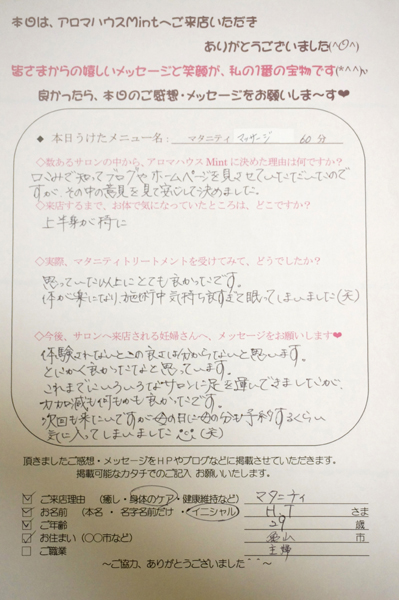 本日は、アロマハウスMintへご来店いただき
ありがとうございました(^O^)
皆さまからの嬉しいメッセージと笑顔が、私の1番の宝物です(*^^*)v
良かったら、本日のご感想・メッセージをお願いしま～す❤
◆ 本日うけたメニュー名: マタニティ マッサージ 60分
◇数あるサロンの中から、アロマハウス Mint に決めた理由は何ですか？
口コミで知ってブログやホームページを見させていただいたので
すが、その中の意見を見て安心して決めました。
◇来店するまで、お体で気になっていたところは、どこですか？
上半身が特に
◇実際、マタニティトリートメントを受けてみて、どうでしたか？
思っていた以上にとても良かったです。
体が楽になり、施術中気持ち良すぎて眠ってしまいました(笑)
◇今後、サロンへ来店される妊婦さんへ、メッセージをお願いします❤
体験されないとこの良さは分からないと思います。
とにかく良かったなと思っています。
これまでにいろいろなサロンに足を運んできましたが、
力加減も何もかも良かったです。
次回も来たいですが母の日に母の分も予約するくらい
気に入ってしまいました (笑)
頂きましたご感想・メッセージをHPやブログなどに掲載させていただきます。
掲載可能なカタチでのご記入 お願いいたします。
☑ ご来店理由 （癒し・身体のケア・健康維持など） マタニティ
☑ お名前 （本名 ・ 名字名前だけ ・イニシャル） H.T さま
☑ ご年齢 29 歳
☑ お住まい（〇〇市など） 松山 市
□ ご職業 主婦
～ご協力、ありがとうございました＾＾～